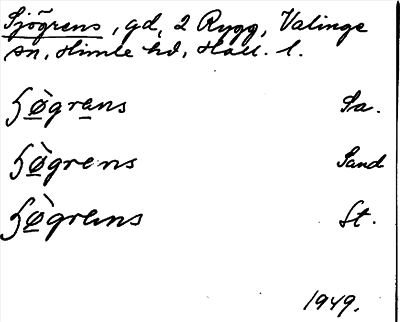 Sjögrens, gd, 2 Rygg, Valinge
sn, Himle hd, Hall. l.
ʃø̀grans Sa.
ʃø̀grens Sand
ʃø̀grens St.
1949.